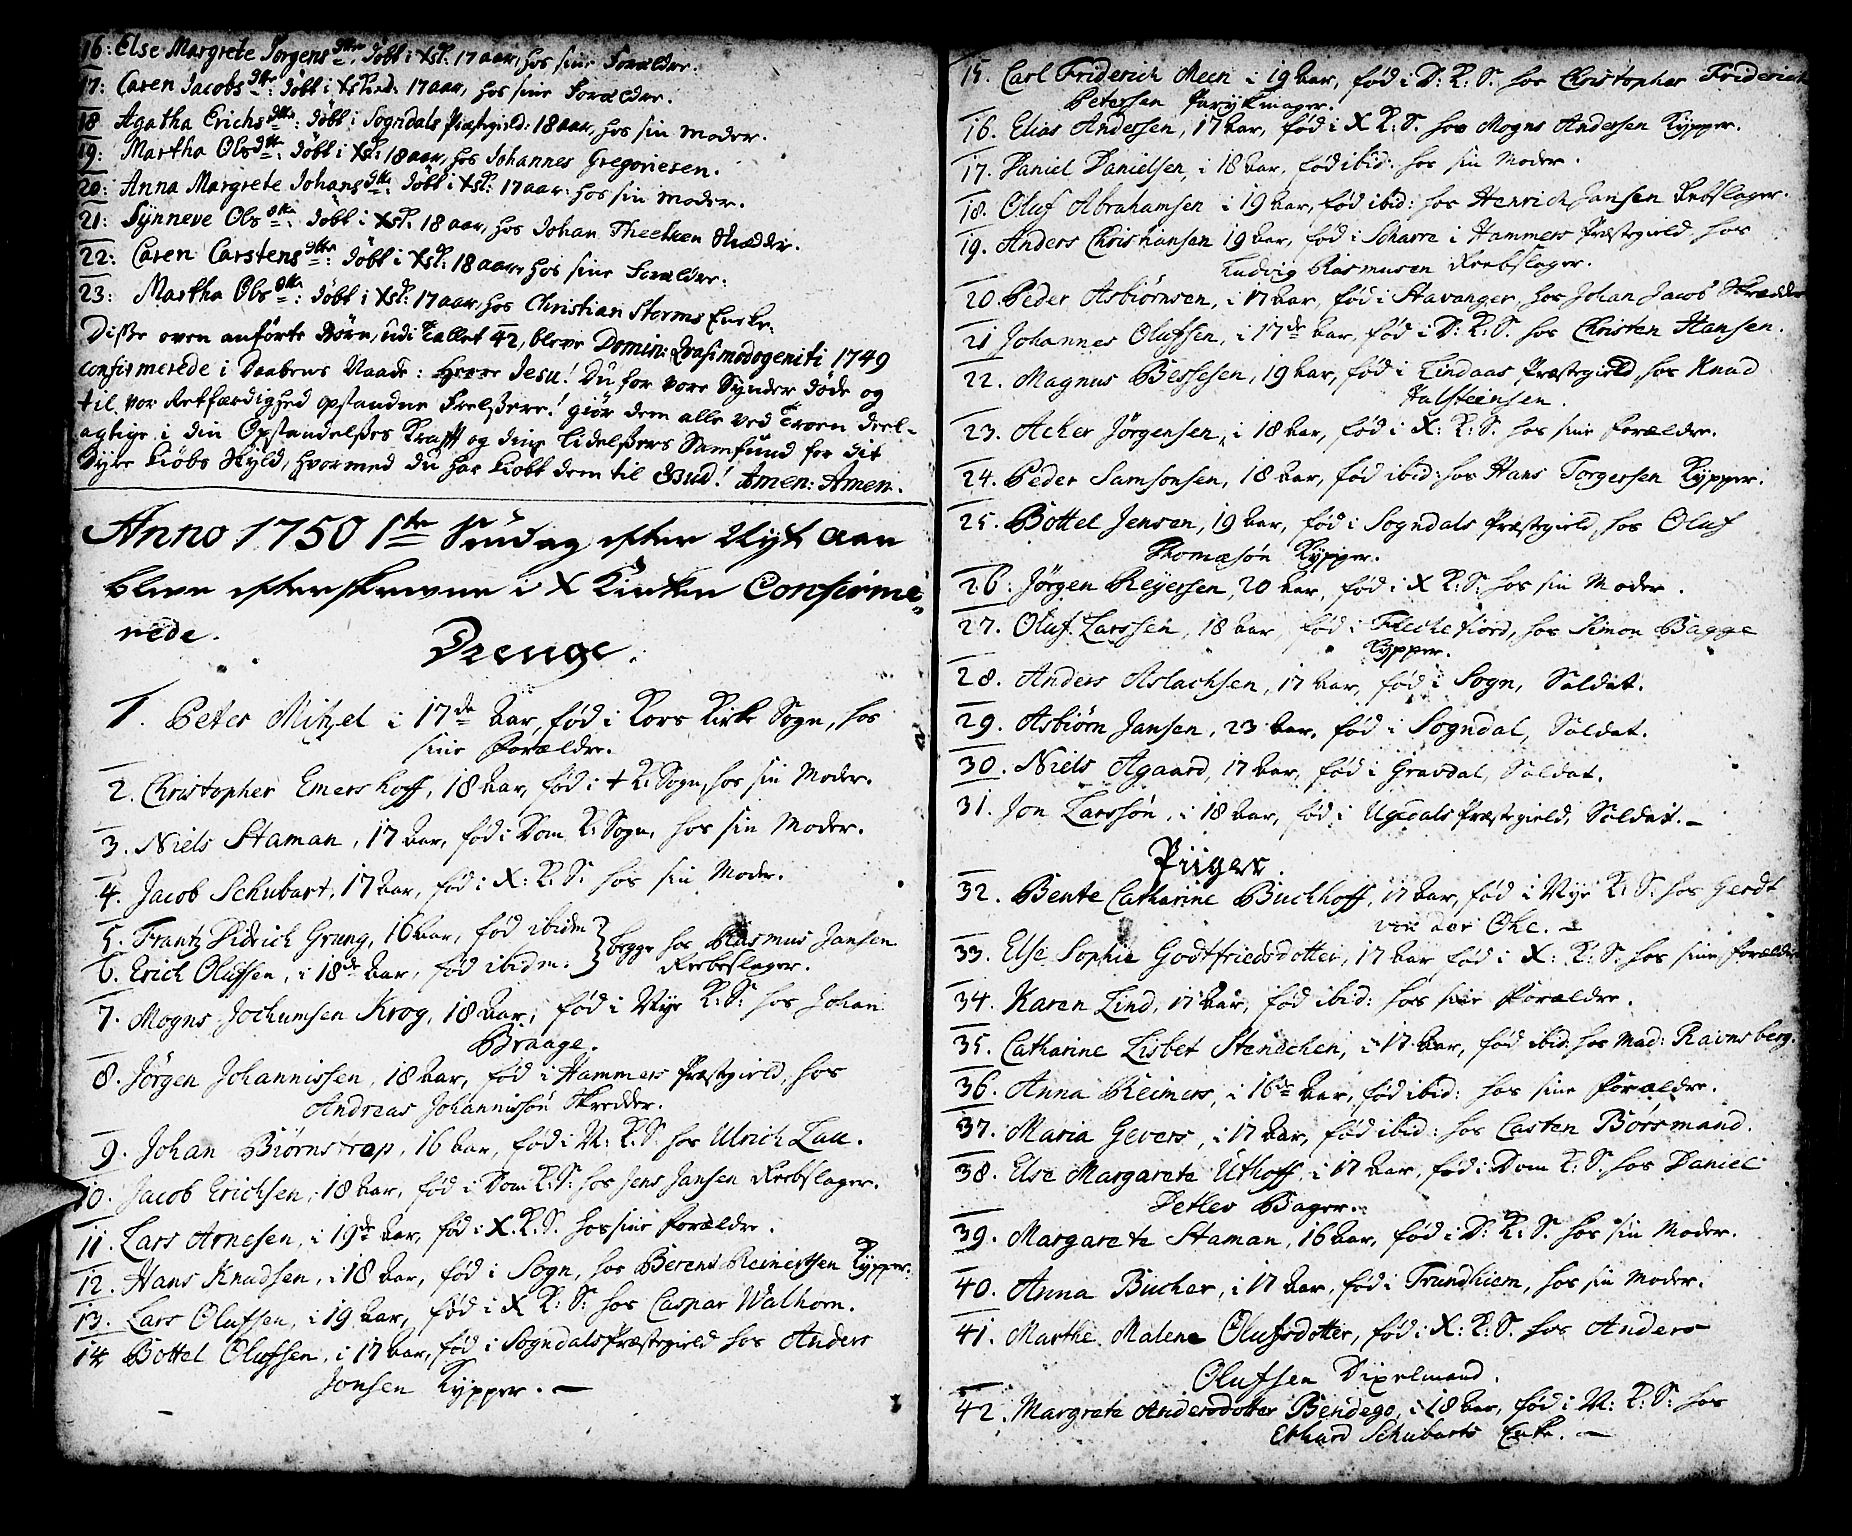 16: Else Margrete Jørgensdttr: døbt i Xst: 17 aar, hos sine Forældre.
17: Caren Jacobsdttr: døbt i Xst: 17 aar, hos sine Forældre.
18 Agatha Erichsdttr: døbt i Sogndals Præstegield: 18 aar, hos sin Moder.
19: Martha Olsdttr: døbt i Xst: 18 aar, hos Johannes Gregoriesen.
20: Anna Margrete Johansdttr: døbt i Xst: 17 aar: hos sin Moder.
21: Synneve Olsdttr: døbt i Xst: 18 aar, hos Johan Skredder.
22: Caren Carstensdttr: døbt i Xst: 18 aar, hos sine Forældre:
23: Martha Olsdttr: døbt i Xst: 17 aar, hos Christian Storms Encke.
Disse oven anførte Børn, udi Tallet 42, bleve Domin: Qvasimodogeniti 1749
confirmerede i Daabens Naade: Herre Jesu! Du for vore Synder døde og
til vor Retfærdighed opstandne Frelsere! giør dem alle ved Troen deel-
agtige i din Opstandelses Krafft og dine Lidelsers Samfund for dit
dyre Kiøbs Skyld, hvormed du har kiøbt dem til Gud! Amen: Amen.
Anno 1750 1ste Søndag efter Nyt aar
bleve efterskrevne i X Kirken Confirme-
rede.
Drenge.
1. Peter Mitzel i 17de Aar, fød i Kors Kirke Sogn, hos
sine Forældre.
2. Christopher Emershoff, 18 Aar, fød i + K: Sogn, hos sin Moder.
3. Niels Staman, 17 Aar, fød i Dom K: Sogn, hos sin Moder.
4. Jacob Schubart, 17 Aar, fød i X: K: S: hos sin Moder.
5. Frantz Didrich Grung, 16 Aar, fød ibidm } begge hos Rasmus Jansen
6. Erich Olufsen, i 18de Aar, fød ibidm: } Reebslager.
7. Mogns Jochumsen Krog, 18 Aar, fød i Nye K: S: hos Johan
Braage.
8. Jørgen Johannissen, 18 Aar, fød i Hammers Præstgield, hos
Andreas Johannissøn Skredder.
9. Johan Biørnstrop, 16 Aar, fød i N: K: S: hos Ulrich Lau.
10. Jacob Erichsen, 18 Aar, fød i Dom K: S: hos Jens Jansen Reebslager.
11. Lars Arnesen, i 19de Aar, fød i X. K: S. hos sine Forældre.
12. Hans Knudsen, i 18 Aar, fød i Sogn, hos Berent Reinertsen Kypper.
13. Lars Olufsen, i 19 Aar, fød i X K: S: hos Caspar Walhorn.
14 Bottel Olufsen, i 17 Aar, fød i Sogndals Præstegield hos Anders
Jonsen Kypper. —
15. Carl Friderich Meen i 19 Aar, fød i D: K: S: hos Christopher Friderich
Petersen Parykmager.
16. Elias Andersen, 17 Aar, fød i X K: S. hos Mogns Andersen Kypper.
17. Daniel Danielsen, i 18 Aar, fød ibid: hos sin Moder.
18. Oluf Abrahamsen i 19 Aar, fød ibid: hos Henrich Jansen Reebslager.
19. Anders Christiansen 19 Aar, fød i i Hammers Præstegield hos
Ludvig Rasmusen Reebslager.
20. Peder Asbiørnsen, i 17 Aar, fød i Stavanger, hos Johan Jacob Skredder
21 Johannes Olufsen, i 17de Aar, fød i D: K: S. hos Christen Hansen.
22. Magnus Bessesen, 19 Aar, fød i Lindaas Præstegield hos Knud
Halsteensen.
23. Acher Jørgensen, i 18 Aar, fød i X: K: S. hos sine Forældre.
24. Peder Samsonsen, 18 Aar, fød ibid: hos Hans Torgersen Kypper.
25. Bottel Jensen, 19 Aar, fød i Sogndals Præstegield, hos Oluf
Thomæsøn Kypper.
26. Jørgen Reyersen, 20 Aar, fød i X K: S: hos sin Moder.
27. Oluf Larssen, 18 Aar, fød i Fleckefiord, hos Simon Bagge
Kypper.
28. Anders Aslachsen, 17 Aar, fød i Sogn, Soldat.
29. Asbiørn Jansen, 23 Aar, fød i Sogndal, Soldat.
30. Niels Agaard, 17 Aar, fød i Gravdal, Soldat.
31. Jon Larssøn, i 18 Aar, fød i Præstegield, Soldat. —
Piiger.
32. Bente Catharine Buchhoff, 17 Aar, fød i Nye K: S: hos Gerdt
von der Ohe. —
33. Else Sophie Godtfriedsdotter, 17 Aar fød i X: K: S: hos sine Forældre
34. Karen Lind, 17 Aar, fød ibid: hos sine Forældre.
35. Catharine Lisbet Stendchen, i 17 Aar, fød ibid: hos Mad: Ravnsberg.
36. Anna Reimers, i 16de Aar, fød ibid: hos sine Forældre.
37. Maria Gevers, i 17 Aar, fød ibid: hos Casten Børsmand.
38. Else Margarete Uthoff, i 17 Aar, fød i Dom K: S: hos Daniel
Detlev Bager.
39. Margarete Staman, 16 Aar, fød i D: K: S. hos sin Moder.
40. Anna Bucher, i 17 Aar, fød i Trundhiem, hos sin Moder.
41. Marthe Malene Olufsdotter, fød i X: K: S. hos Anders
Olufsen Dixelmand.
42. Margrete Andersdotter Bendego, i 18 Aar, fød i N: K: S: hos
Ethard Schubarts Enke. —